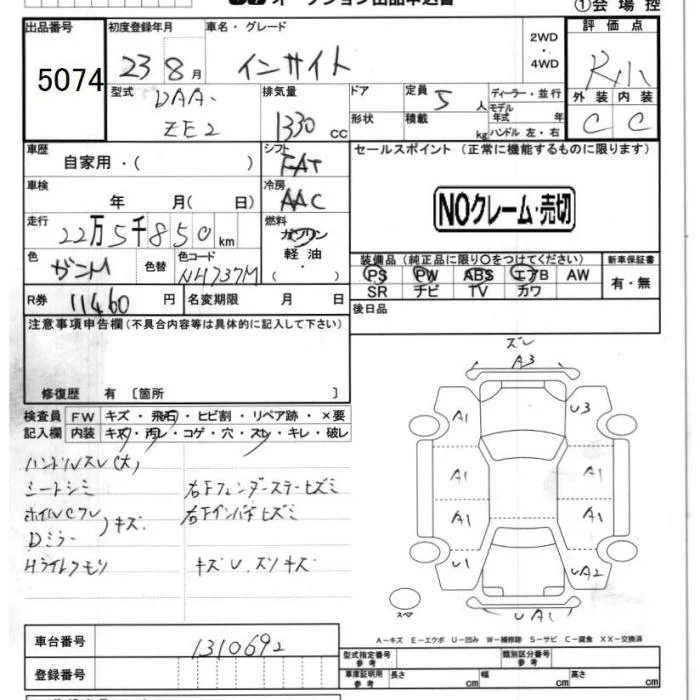 オークション出品申込書
①会場控
出品番号
5074
初度登録年月
23 8月
車名・グレード
インサイト
2WD
・
4WD
評価点
R小
外装 内装
C C
型式
DAA-
ZE2
排気量
1330 cc
ドア
形状
定員
5人
積載
kg
ディーラー・並行
モデル
年式 年
ハンドル 左・右
車歴
自家用・( )
シフト
FAT
セールスポイント (正常に機能するものに限ります)
NOクレーム・売切
車検
年 月( 日)
冷房
AAC
走行
22万5千850km
燃料
ガソリン
軽油・
( )
色
ガンM
色替
色コード
NH737M
装備品 (純正品に限り○をつけてください)
PS PW ABS エアB AW
SR ナビ TV カワ
新車保証書
有・無
R券 11460 円
名変期限 月 日
後日品
注意事項申告欄 (不具合内容等は具体的に記入して下さい)
修復歴 有 〔箇所 〕
検査員
記入欄
FW キズ・飛石・ヒビ割・リペア跡・×要
内装 キズ・汚レ・コゲ・穴・スレ・キレ・破レ
ハンドルスレ(大)
シートシミ
右Fフェンダーステーヒズミ
ホイルCワレ
右Fインパネヒズミ
Dミラー
キズ
Hライトクモリ
キズU.スリキズ
ズレ
A3
A1 U3
A1 A1
A1 A1
U1 UA2
UA1
スペア
A-キズ E-エクボ U-凹み W-補修跡 S-サビ C-腐食 XX-交換済
車台番号
1310692
登録番号
型式指定番号
参考
類別区分番号
参考
車庫証明用
参考
長さ cm
幅 cm
高さ cm